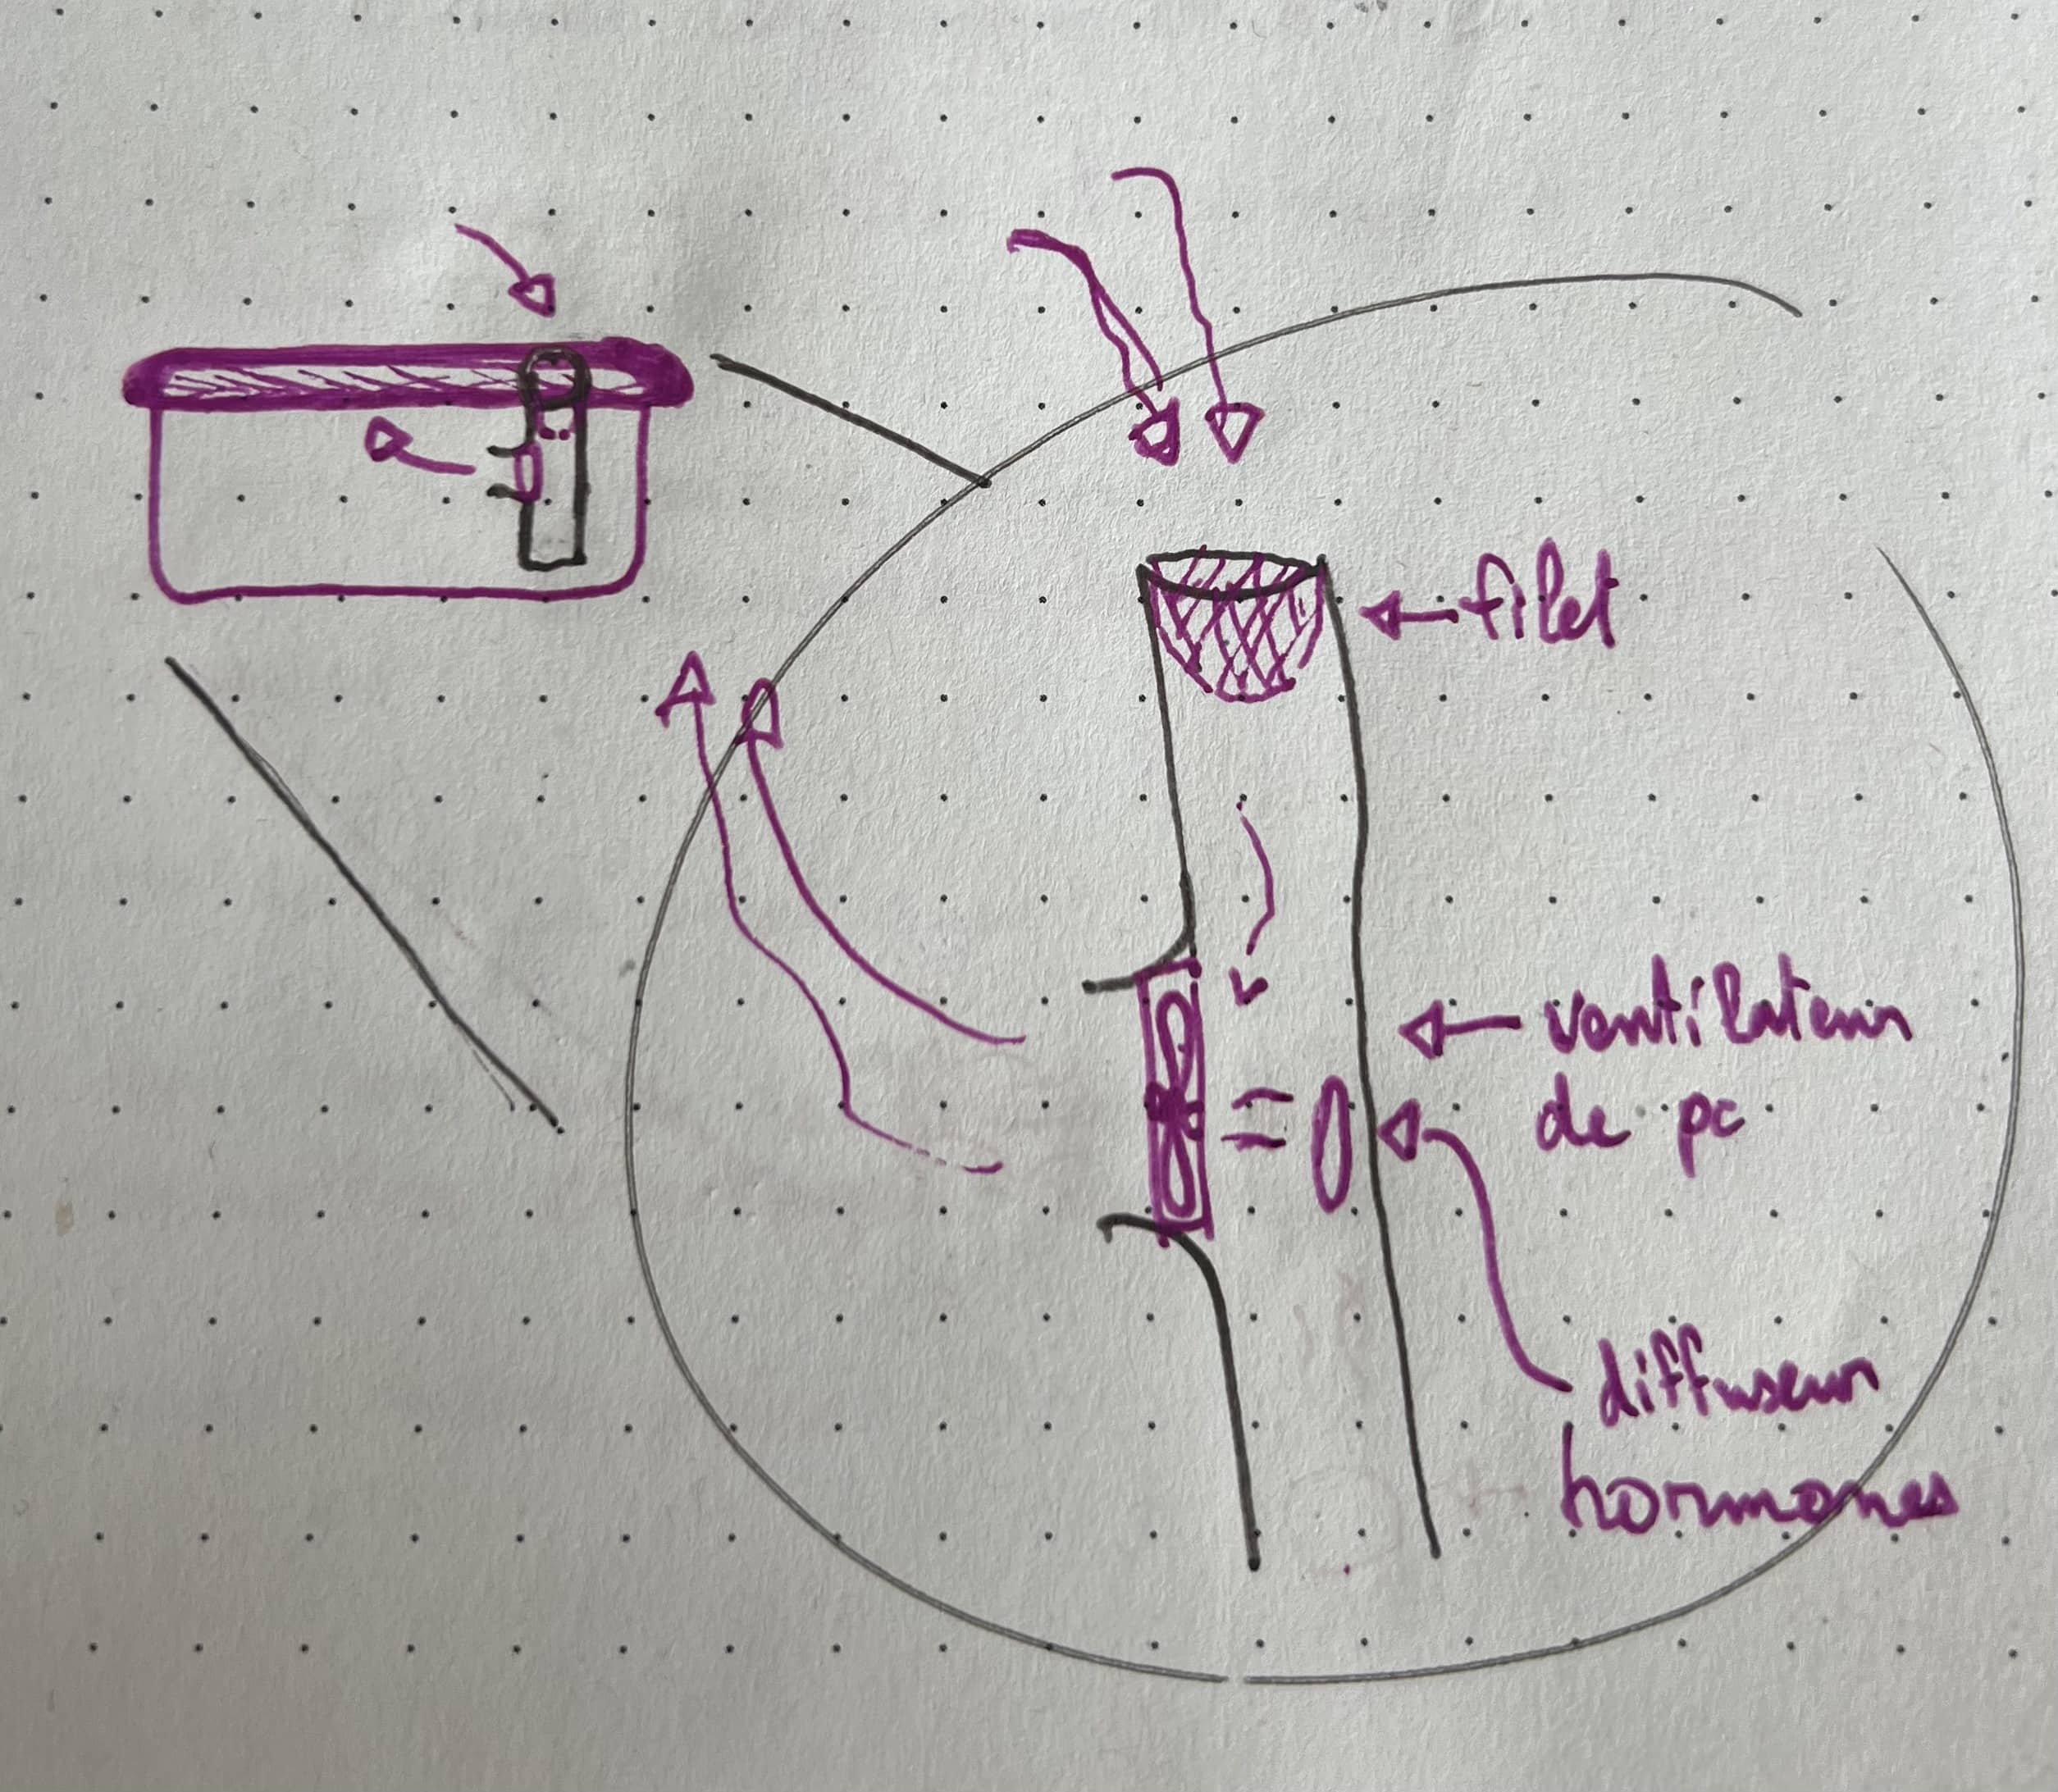 filet
ventilateur
de pc
diffuseur
hormones